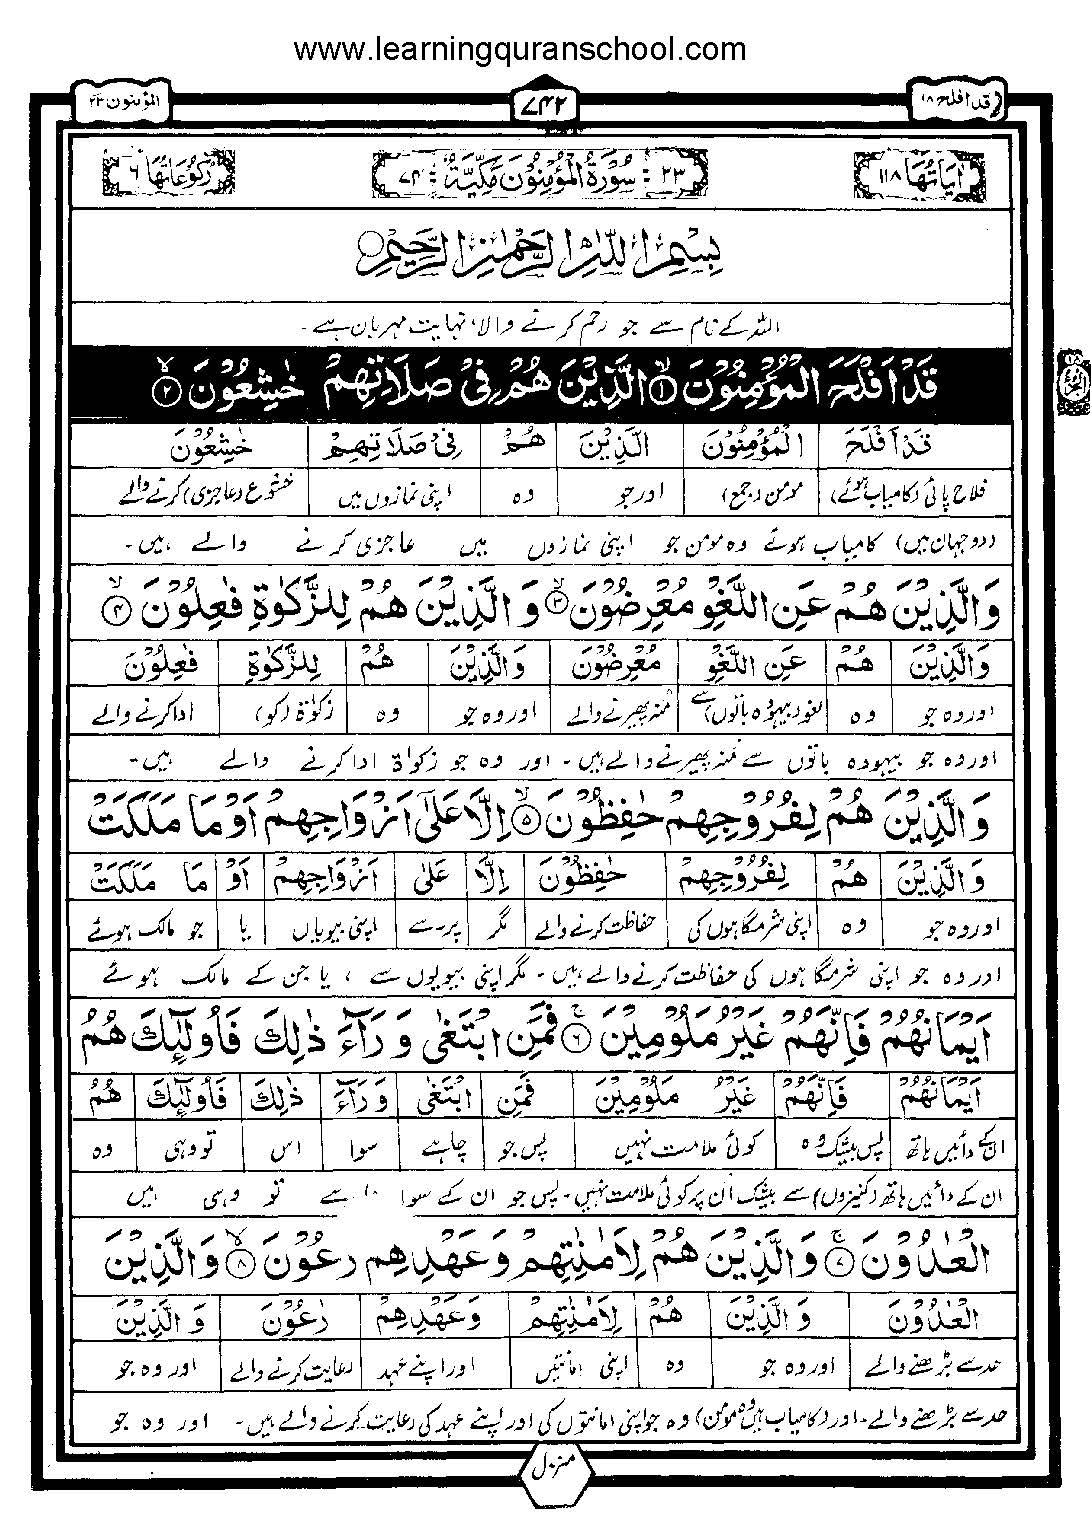 www.learningquranschool.com
قد افلح ۱۸
۷۴۲
المؤمنون ۲۳
اٰیَاتُهَا ۱۱۸
۲۳ سُوْرَةُ الْمُؤْمِنُوْنَ مَكِّیَّةٌ ۷۴
رُكُوْعَاتُهَا ۶
بِسْمِ اللّٰهِ الرَّحْمٰنِ الرَّحِیْمِ
اللہ کے نام سے جو رحم کرنے والا، نہایت مہربان ہے۔
قَدْ اَفْلَحَ الْمُؤْمِنُوْنَ ۱ الَّذِیْنَ هُمْ فِیْ صَلَاتِهِمْ خٰشِعُوْنَ ۲
قَدْ اَفْلَحَ الْمُؤْمِنُوْنَ الَّذِیْنَ هُمْ فِیْ صَلَاتِهِمْ خٰشِعُوْنَ
فلاح پائی (کامیاب ہوئے) مومن (جمع) اور جو وہ اپنی نمازوں میں خشوع (عاجزی) کرنے والے
(دو جہان میں) کامیاب ہوئے وہ مومن جو اپنی نمازوں میں عاجزی کرنے والے ہیں۔
وَالَّذِیْنَ هُمْ عَنِ اللَّغْوِ مُعْرِضُوْنَ ۳ وَالَّذِیْنَ هُمْ لِلزَّكٰوةِ فٰعِلُوْنَ ۴
وَالَّذِیْنَ هُمْ عَنِ اللَّغْوِ مُعْرِضُوْنَ وَالَّذِیْنَ هُمْ لِلزَّكٰوةِ فٰعِلُوْنَ
اور وہ جو وہ لغو (بیہودہ باتوں) سے مُنہ پھیرنے والے اور وہ جو وہ زکوٰة (کو) ادا کرنے والے
اور وہ جو بیہودہ باتوں سے مُنہ پھیرنے والے ہیں۔ اور وہ جو زکواة ادا کرنے والے ہیں۔
وَالَّذِیْنَ هُمْ لِفُرُوْجِهِمْ حٰفِظُوْنَ ۵ اِلَّا عَلٰۤی اَزْوَاجِهِمْ اَوْ مَا مَلَكَتْ
وَالَّذِیْنَ هُمْ لِفُرُوْجِهِمْ حٰفِظُوْنَ اِلَّا عَلٰۤی اَزْوَاجِهِمْ اَوْ مَا مَلَكَتْ
اور وہ جو وہ اپنی شرمگاہوں کی حفاظت کرنے والے مگر پر۔سے اپنی بیویاں یا جو مالک ہوئے
اور وہ جو اپنی شرمگاہوں کی حفاظت کرنے والے ہیں۔ مگر اپنی بیویوں سے ، یا جن کے مالک ہوئے
اَیْمَانُهُمْ فَاِنَّهُمْ غَیْرُ مَلُوْمِیْنَ ۶ فَمَنِ ابْتَغٰی وَرَآءَ ذٰلِكَ فَاُولٰٓئِكَ هُمُ
اَیْمَانُهُمْ فَاِنَّهُمْ غَیْرُ مَلُوْمِیْنَ فَمَنِ ابْتَغٰی وَرَآءَ ذٰلِكَ فَاُولٰٓئِكَ هُمُ
ان کے دائیں ہاتھ پس بیشک وہ کوئی ملامت نہیں پس جو چاہے سوا اس تو وہی وہ
ان کے دائیں ہاتھ (کنیزوں) سے بیشک ان پر کوئی ملامت نہیں۔ پس جو ان کے سوا سے تو وہی ہیں
الْعٰدُوْنَ ۷ وَالَّذِیْنَ هُمْ لِاَمٰنٰتِهِمْ وَعَهْدِهِمْ رٰعُوْنَ ۸ وَالَّذِیْنَ
الْعٰدُوْنَ وَالَّذِیْنَ هُمْ لِاَمٰنٰتِهِمْ وَعَهْدِهِمْ رٰعُوْنَ وَالَّذِیْنَ
حد سے بڑھنے والے اور وہ جو وہ اپنی امانتیں اور اپنے عہد رعایت کرنے والے اور وہ جو
حد سے بڑھنے والے۔ اور (کامیاب ہیں وہ مومن) وہ جو اپنی امانتوں کی اور اپنے عہد کی رعایت کرنے والے ہیں۔ اور وہ جو
منزل